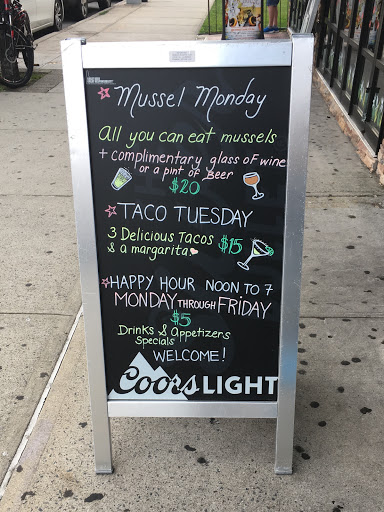 Mussel Monday
All you can eat mussels
+ complimentary glass of wine
or a pint of Beer
$20
TACO TUESDAY
3 Delicious Tacos
& a margarita
$15
HAPPY HOUR NOON TO 7
MONDAY THROUGH FRIDAY
$5
Drinks & Appetizers
Specials
WELCOME!
Coors LIGHT